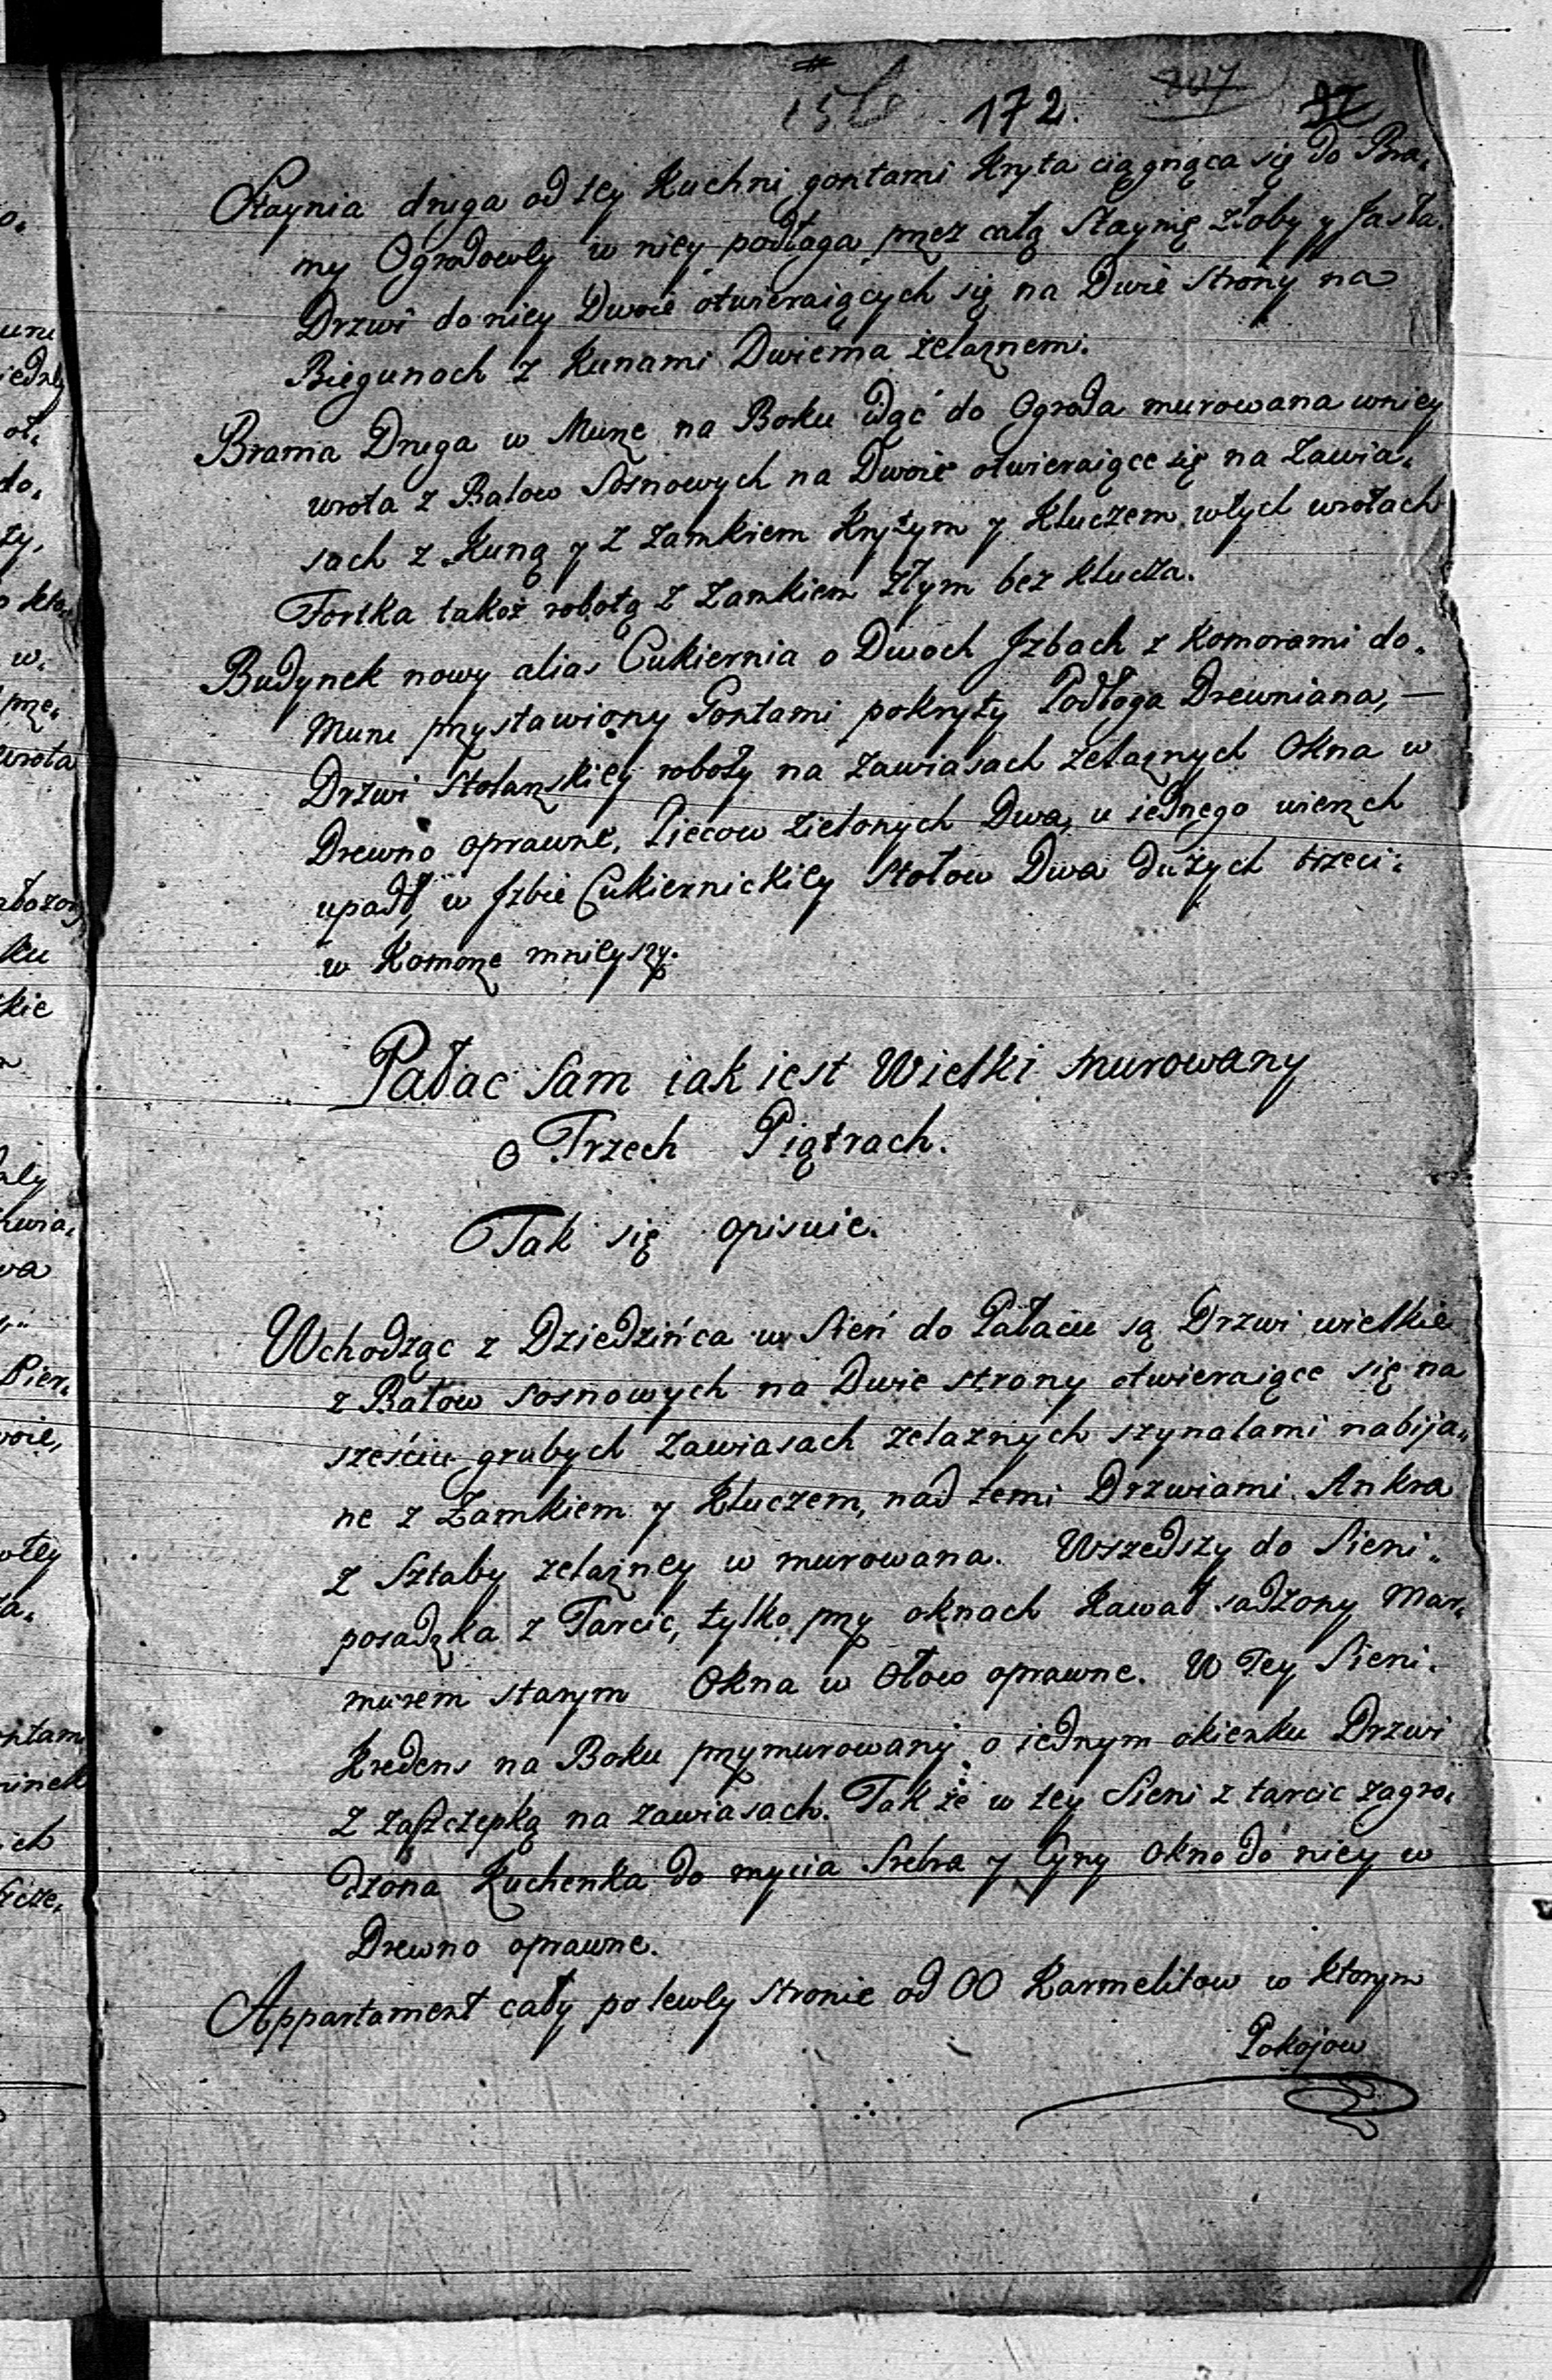 172.
Staynia druga od tey Kuchni gontami Kryta ciągnąca się do Bra,
my Ogrodowey w niey podłaga przez całą Staynię złoby y Jasła.
Drzwi do niey Dwoie otwieraiących się na Dwie strony na
Biegunach z Kunami Dwiema żelaznemi.
Brama Druga w Murze na Boku Idąc do Ogroda murowana wniey
wrota z Balow Sosnowych na Dwoie otwieraiące się na Zawia,
sach z Kuną y z zamkiem Krytym y Kluczem, wtych wrotach
Fortka takoż robotą z zamkiem złym bez klucza.
Budynek nowy alias Cukiernia o Dwoch Jzbach z Komorami do,
Muru przystawiony Gontami pokryty Podłoga Drewniana, —
Drzwi Stolarskiey roboty na zawiasach żelaznych Okna w
Drewno oprawne, Piecow zielonych Dwa, u iednego wierzch
upadł, w Jzbie Cukiernickiey Stołow Dwa dużych trzeci
w Komorze mnieyszy.
Pałac Sam iak iest Wielki murowany
o Trzech Piątrach.
Tak się opisuie.
Wchodząc z Dziedzińca w Sień do Pałacu są Drzwi wielkie
z Balow sosnowych na Dwie strony otwieraiące się na
sześciu grubych zawiasach zelaznych szynalami nabija,
ne z Zamkiem y Kluczem, nad temi Drzwiami Ankra
z Sztaby zelazney w murowana. Wszedszy do Sieni
posadzka z Tarcic, tylko przy oknach Kawał sadzony Mar,
murem starym Okna w Ołow oprawne. W Tey Sieni
Kredens na Boku przymurowany o iednym okienku Drzwi
z zaszczepką na zawiasach. Tak że w tey Sieni z tarcic zagro,
dzona Kuchenka do mycia Srebra y Cyny Okno do niey w
Drewno oprawne.
Appartament cały po lewey stronie od OO Karmelitow w ktorym
Pokojow